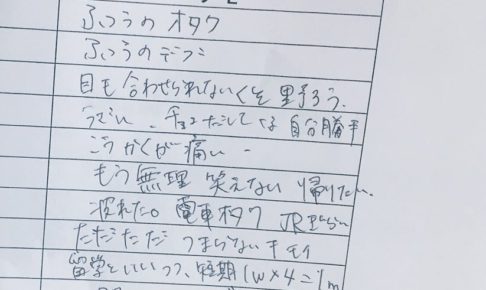 ふつうの オタク
ふつうのデブ
目も合わせられないくそ野ろう.
うざい. チョコだしてくる 自分勝手
こうかくが痛い
もう無理 笑えない 帰りたい.
疲れた。電車オタク JR
ただただ つまらない キモイ
留学といいつつ、短期 1w×4=1m